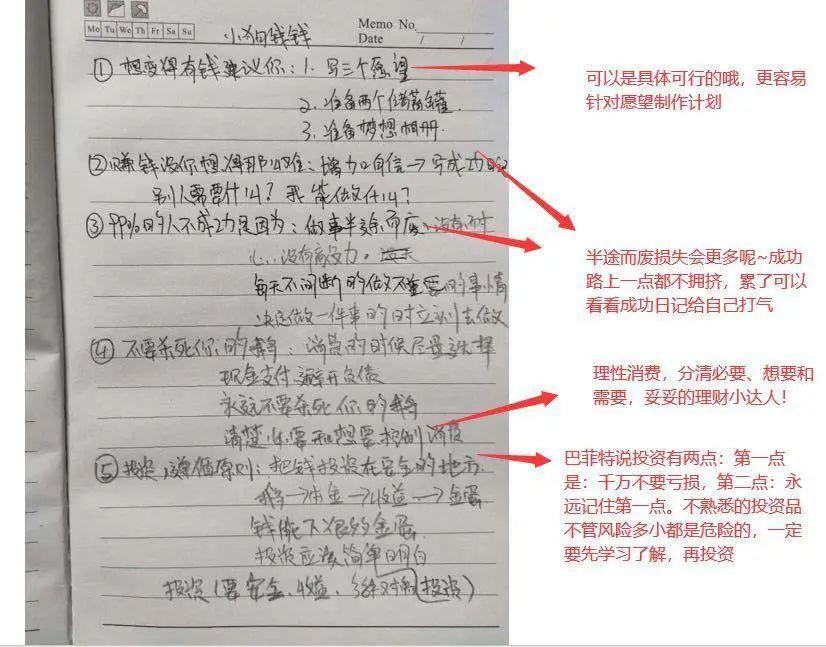 Memo No
Mo Tu We Th Fr Sa Su
Date / /
小狗钱钱
① 想变得有钱建议你：1. 写三个愿望
2. 准备两个储蓄罐.
3. 准备梦想相册.
② 赚钱没你想得那么难：增加自信→写成功日记
别人需要什么？我能做什么？
③ 99%的人不成功是因为：做事半途而废、没有耐
心、没有毅力。
每天不间断的做不重要的事情
决定做一件事的时立刻去做
④ 不要杀死你的鹅：消费的时候尽量选择
现金支付 避开负债
永远不要杀死你的鹅
清楚 必要和想要 控制消费
⑤ 投资 遵循原则：把钱投资在安全的地方.
鹅→本金→收益→金蛋
钱能下很多金蛋
投资应该简单明白
投资（要安全、收益、 投资）
可以是具体可行的哦，更容易
针对愿望制作计划
半途而废损失会更多呢~成功
路上一点都不拥挤，累了可以
看看成功日记给自己打气
理性消费，分清必要、想要和
需要，妥妥的理财小达人！
巴菲特说投资有两点：第一点
是：千万不要亏损，第二点：永
远记住第一点。不熟悉的投资品
不管风险多小都是危险的，一定
要先学习了解，再投资